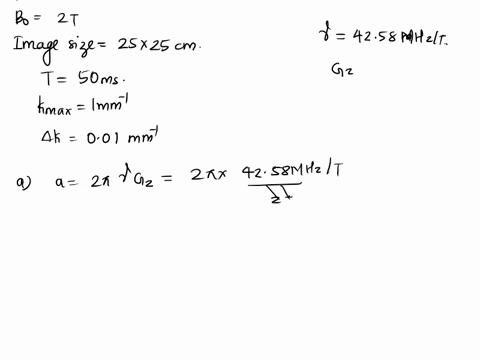 B₀ = 2T
Image size = 25×25 cm.
T = 50 ms.
kmax = 1 mm⁻¹
Δk = 0.01 mm⁻¹
γ = 42.58 MHz/T.
Gz
a) a = 2π γ Gz = 2π × 42.58 MHz/T